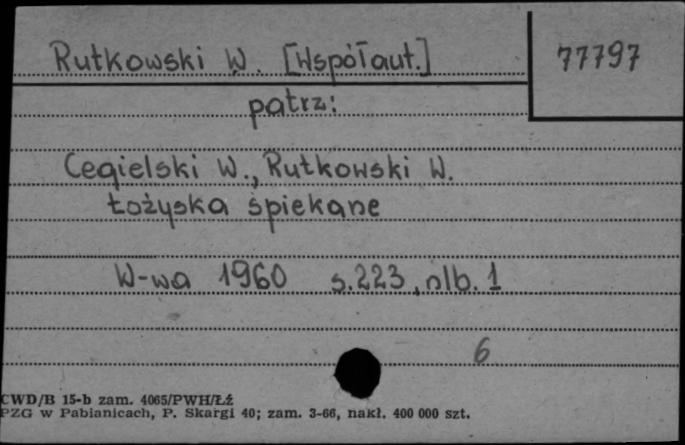 Rutkowski W. [Współaut.]
77797
patrz:
Cegielski W., Rutkowski W.
Łożyska spiekane
W-wa 1960 s.223, nlb. 1
6
CWD/B 15-b zam. 4065/PWH/Łź
PZG w Pabianicach, P. Skargi 40; zam. 3-66, nakł. 400 000 szt.